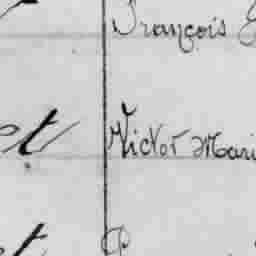 François
et Victor Mari
et